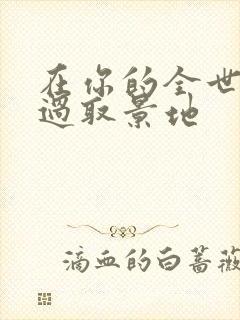 在你的全世
过取景地
滴血的白蔷薇